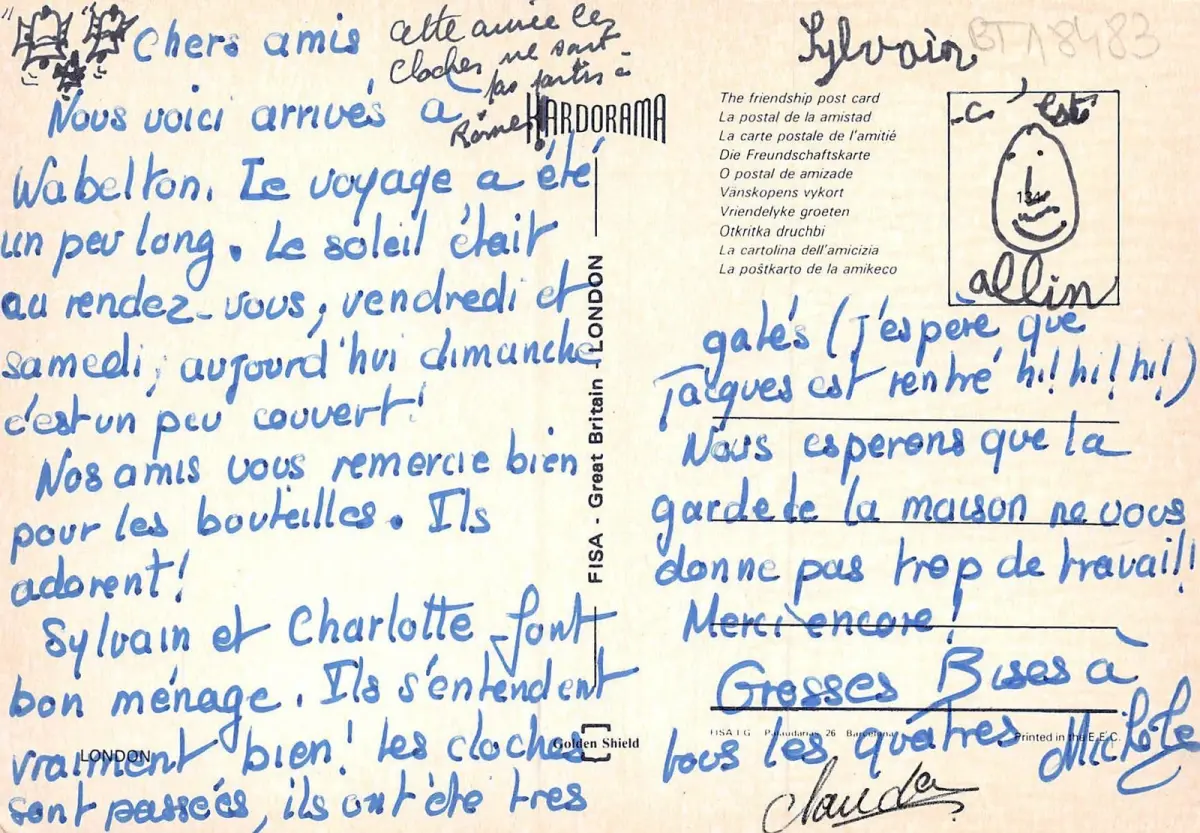 Chers amis
Nous voici arrivés à
Wabelton. Le voyage a été
un peu long. Le soleil était
au rendez-vous, vendredi et
samedi; aujourd'hui dimanche
c'est un peu couvert!
Nos amis vous remercie bien
pour les bouteilles. Ils
adorent!
Sylvain et Charlotte font
bon ménage. Ils s'entendent
vraiment bien! Les cloches
sont passées, ils ont été tres
cette année les
cloches ne sont
pas partis à
Rome!
KARDORAMA
FISA - Great Britain - LONDON
LONDON
Golden Shield
Sylvain
BT18483
The friendship post card
La postal de la amistad
La carte postale de l'amitié
Die Freundschaftskarte
O postal de amizade
Vänskopens vykort
Vriendelyke groeten
Otkritka druchbi
La cartolina dell'amicizia
La poŝtkarto de la amikeco
c'est
134
allin
gatés (J'espère que
Jacques est rentré hi! hi! hi!)
Nous esperons que la
garde de la maison ne vous
donne pas trop de travail!
Merci encore!
Grosses Bises à
tous les quatres
Michèle
FISA I G Palaudarias 26 Barcelona
Printed in the E.E.C.
Claude